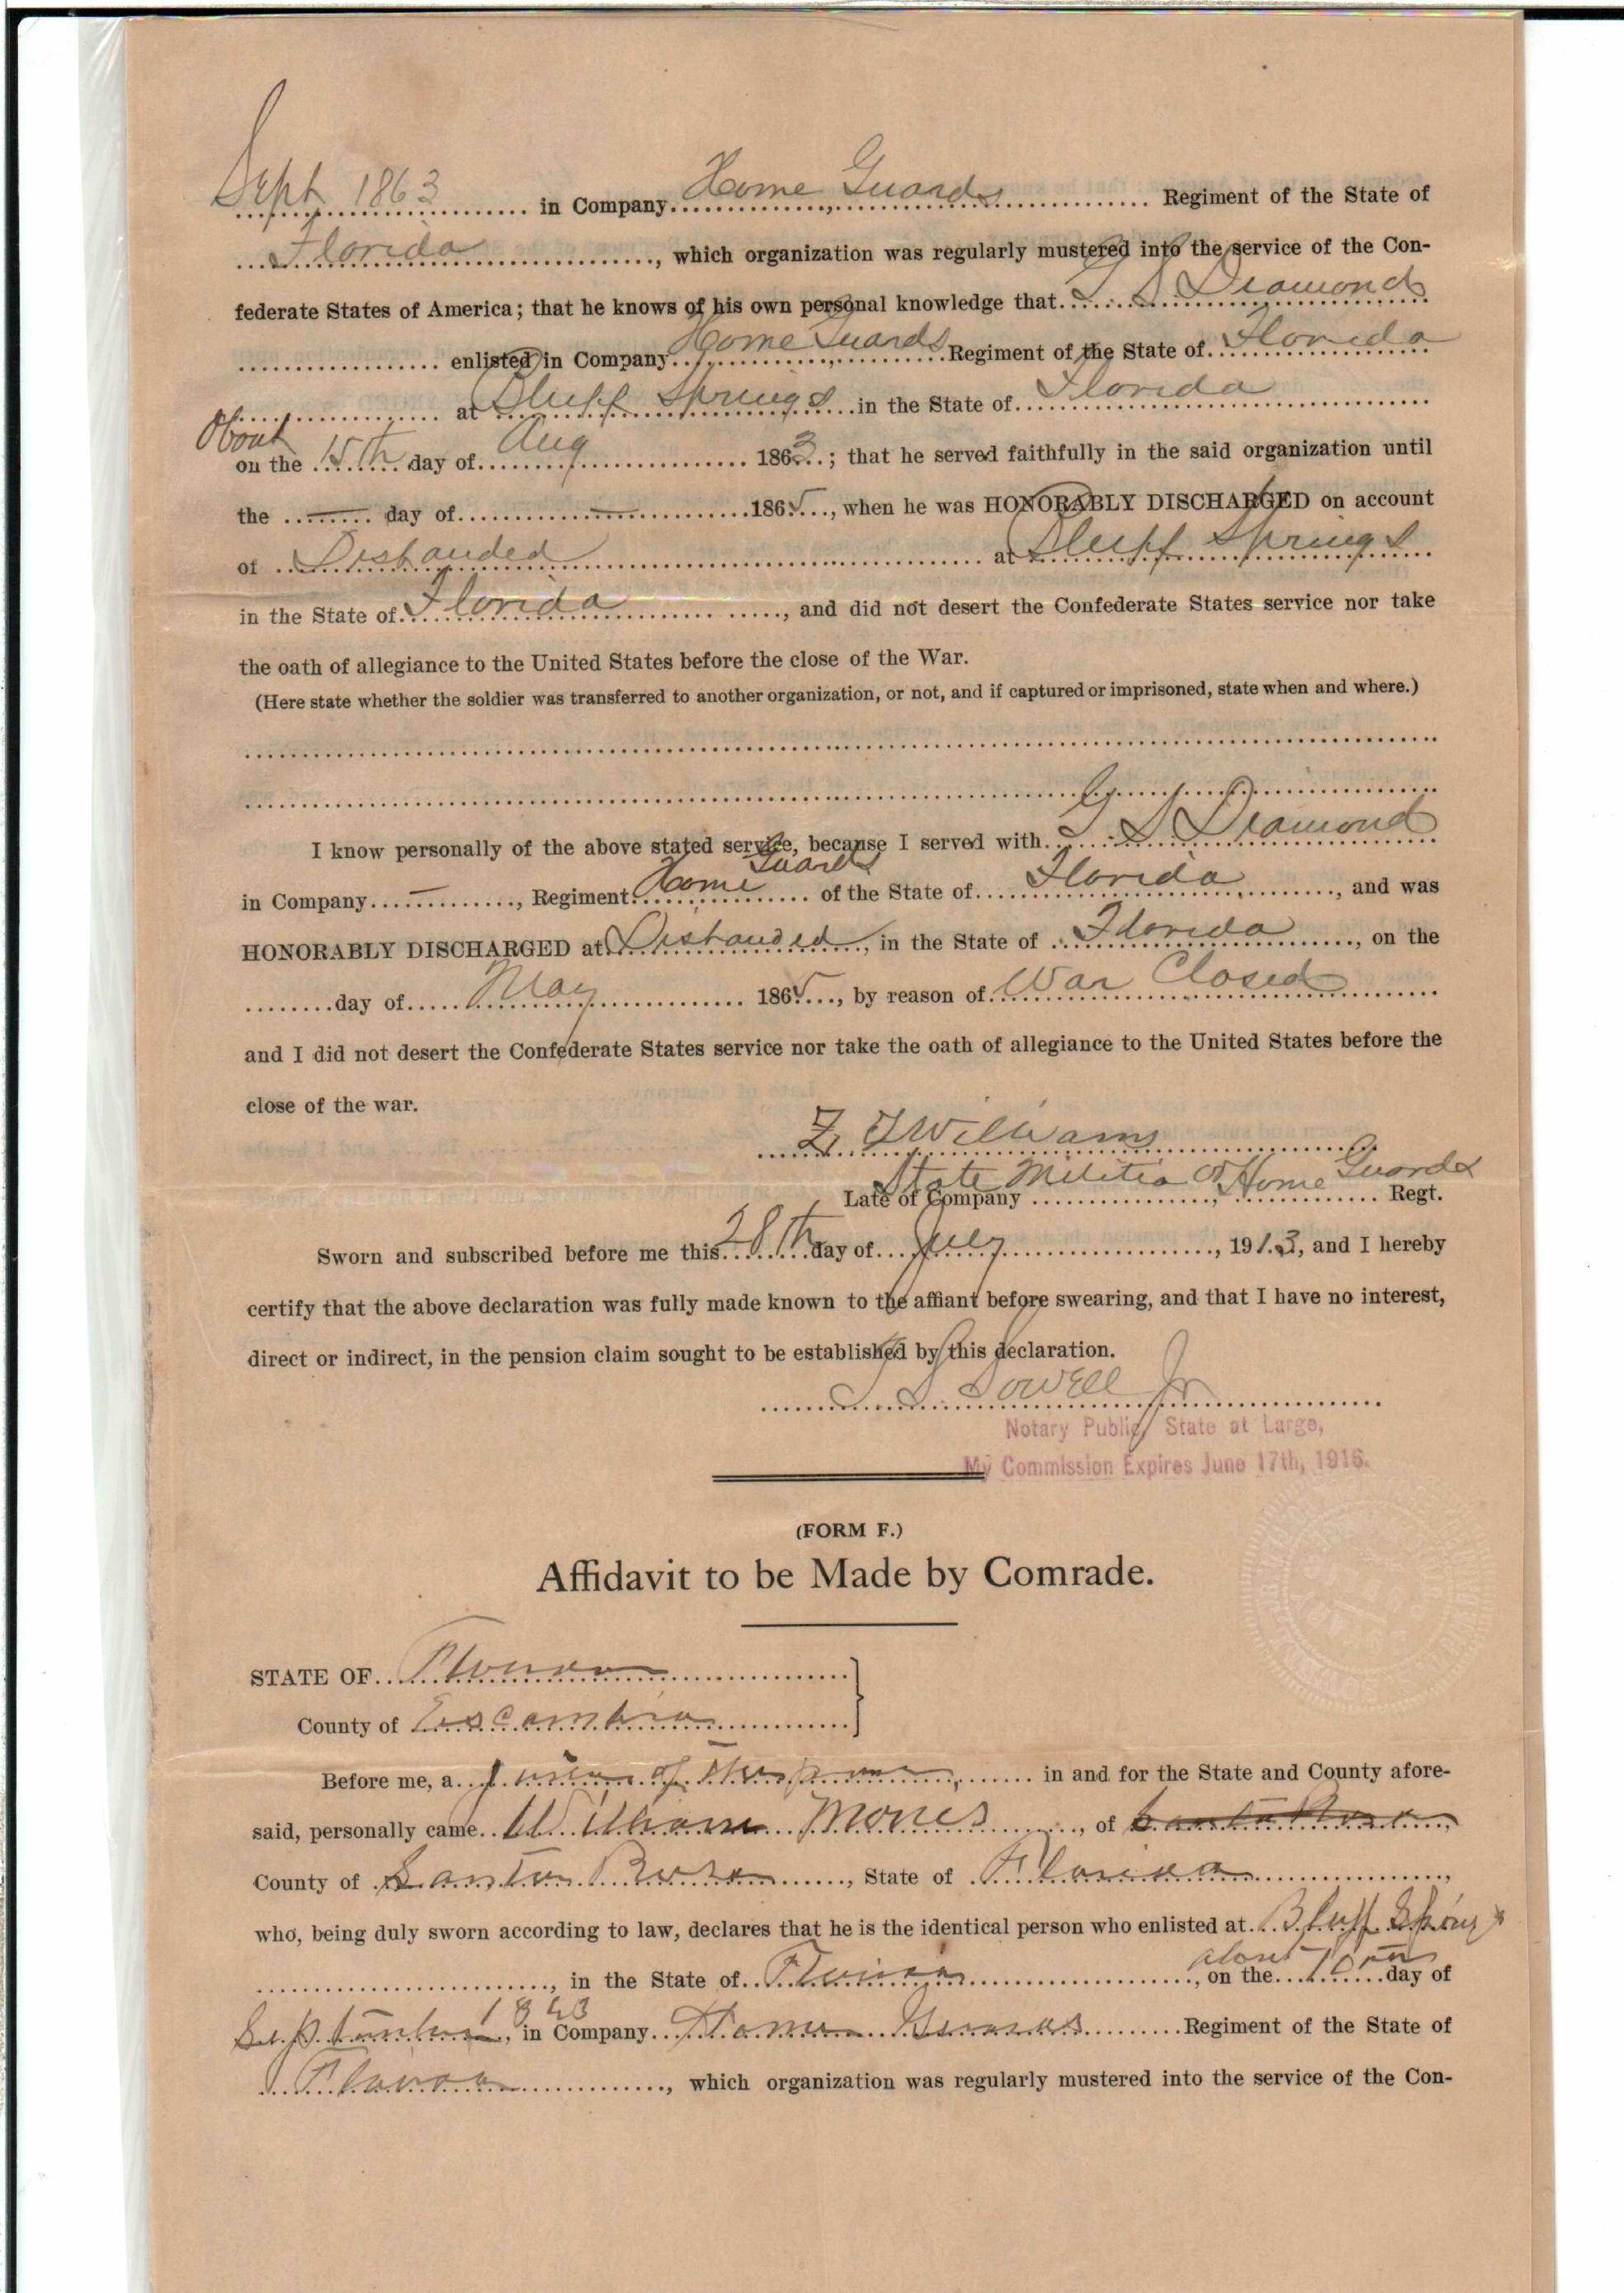 Sept 1863 in Company Home Guards Regiment of the State of
Florida, which organization was regularly mustered into the service of the Con-
federate States of America; that he knows of his own personal knowledge that G S Diamond
enlisted in Company Home Guards Regiment of the State of Florida
at Bluff Springs in the State of Florida
About
on the 15th day of Aug 1863; that he served faithfully in the said organization until
the — day of — 1865, when he was HONORABLY DISCHARGED on account
of Disbanded at Bluff Springs
in the State of Florida, and did not desert the Confederate States service nor take
the oath of allegiance to the United States before the close of the War.
(Here state whether the soldier was transferred to another organization, or not, and if captured or imprisoned, state when and where.)
I know personally of the above stated service, because I served with G S Diamond
in Company —, Regiment Home Guards of the State of Florida, and was
HONORABLY DISCHARGED at Disbanded, in the State of Florida, on the
day of May 1865, by reason of War Closed
and I did not desert the Confederate States service nor take the oath of allegiance to the United States before the
close of the war.
Z. T Williams
State Militia or Home Guards
Late of Company Regt.
Sworn and subscribed before me this 28th day of July, 1913, and I hereby
certify that the above declaration was fully made known to the affiant before swearing, and that I have no interest,
direct or indirect, in the pension claim sought to be established by this declaration.
Sowell Jr
Notary Public, State at Large,
My Commission Expires June 17th, 1915.
(FORM F.)
Affidavit to be Made by Comrade.
STATE OF Florida
County of Escambia
Before me, a in and for the State and County afore-
said, personally came William Mones, of Santa Rosa,
County of Santa Rosa, State of Florida,
who, being duly sworn according to law, declares that he is the identical person who enlisted at Bluff Springs
, in the State of Florida, about on the 10th day of
September 1863, in Company Home Guards Regiment of the State of
Florida, which organization was regularly mustered into the service of the Con-